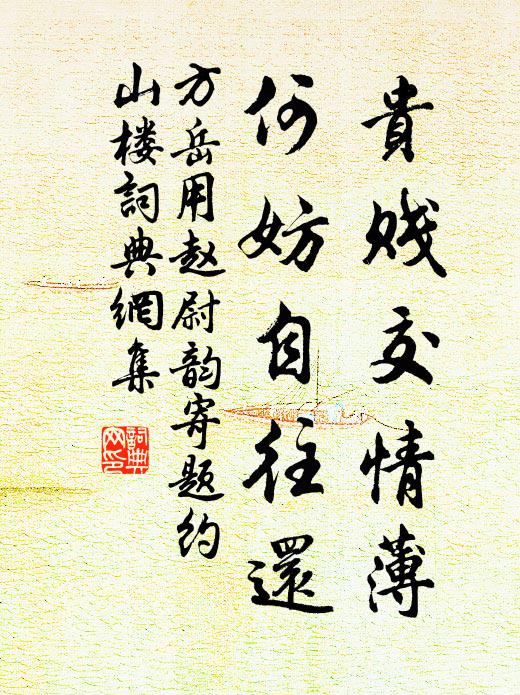 貴賎交情薄
何妨自往還
方岳用赵尉韵寄题约
山楼詞典網集
詞典
网印